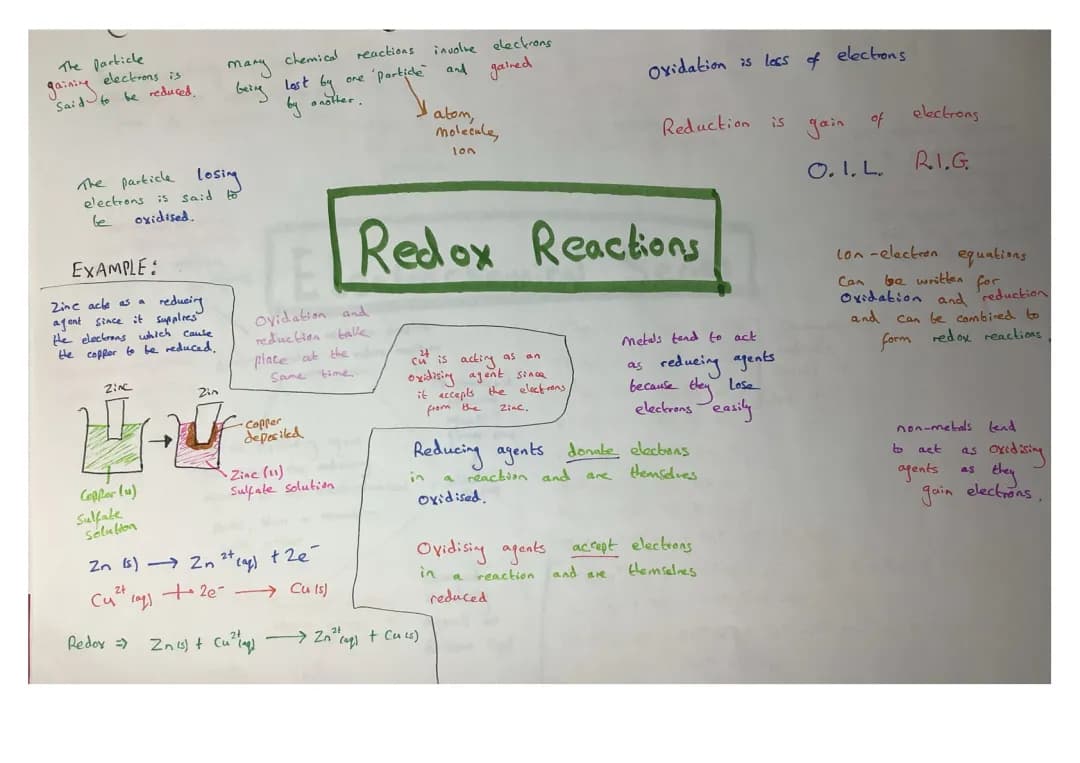 The particle
gaining electrons is
said to be reduced.
many chemical reactions involve electrons
being lost by one 'particle' and gained
by another.
atom,
molecule,
ion
Oxidation is loss of electrons
Reduction is gain of electrons
O.I.L. R.I.G.
The particle losing
electrons is said to
be oxidised.
Redox Reactions
EXAMPLE:
Zinc acts as a reducing
agent since it supplies
the electrons which cause
the copper to be reduced.
Oxidation and
reduction take
place at the
same time.
Cu²⁺ is acting as an
oxidising agent since
it accepts the electrons
from the zinc.
Metals tend to act
as reducing agents
because they lose
electrons easily
Ion-electron equations
can be written for
Oxidation and reduction
and can be combined to
form redox reactions.
non-metals tend
to act as oxidising
agents as they
gain electrons.
Zinc
Zin
Copper
deposited
Zinc (11)
Sulfate solution
Copper (11)
Sulfate
solution
Reducing agents donate electrons
in a reaction and are themselves
oxidised.
Oxidising agents accept electrons
in a reaction and are themselves
reduced
Zn (s) → Zn²⁺(aq) + 2e⁻
Cu²⁺(aq) + 2e⁻ → Cu(s)
Redox ⇒ Zn(s) + Cu²⁺(aq) → Zn²⁺(aq) + Cu(s)